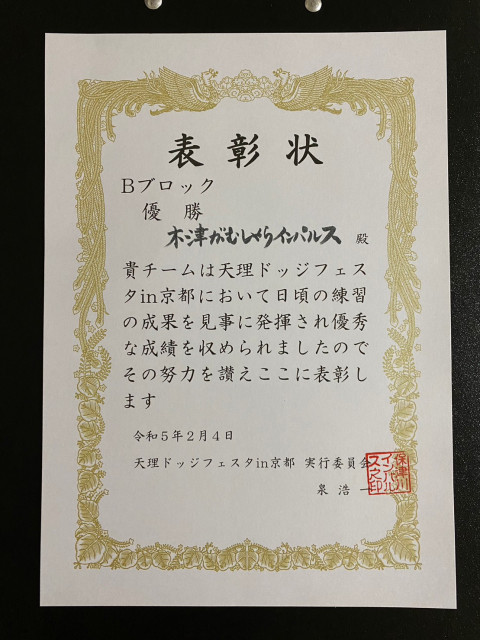 表彰状
Bブロック
優勝
木津がむしゃらインパルス 殿
貴チームは天理ドッジフェス
タin京都において日頃の練習
の成果を見事に発揮され優秀
な成績を収められましたので
その努力を讃えここに表彰し
ます
令和5年2月4日
天理ドッジフェスタin京都 実行委員会
泉 浩一